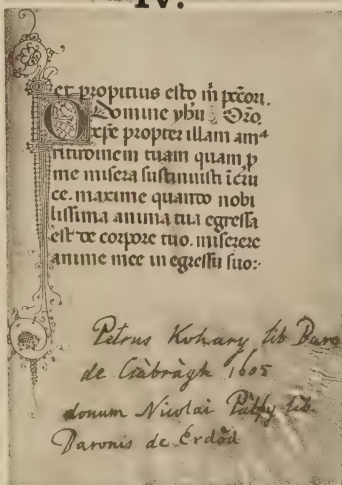 IV.
et propitius esto m̄ p̄cc̄ori.
Domine yhu Oro.
xp̄e propter illam am⁴
ritudinem tuam quam p
me misera sustinuisti ī cru
ce. maxime quando nobi
lissima anima tua egressa
est de corpore tuo. miserere
anime mee in egressu suo:
Petrus Kohary lib Baro
de Csàbràgh 1605
donum Nicolai Pálffy lib.
Baronis de Erdőd